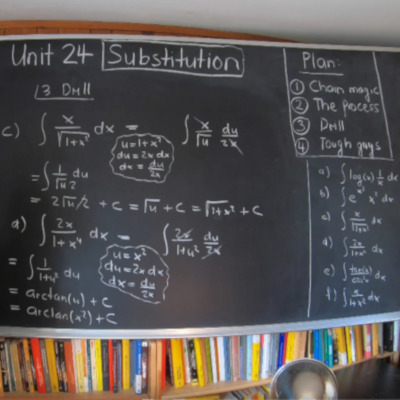 Unit 24 Substitution
3 Drill
c) ∫ x/√(1+x²) dx = ∫ x/√u du/2x
u = 1+x²
du = 2x dx
dx = du/2x
= ∫ 1/(√u 2) du
= 2√u/2 + C = √u + C = √(1+x²) + C
d) ∫ 2x/(1+x⁴) dx = ∫ 2x/(1+u²) du/2x
u = x²
du = 2x dx
dx = du/2x
= ∫ 1/(1+u²) du
= arctan(u) + C
= arctan(x²) + C
Plan:
① Chain magic
② The process
③ Drill
④ Tough guys
a) ∫ log(x) 1/x dx
b) ∫ e^x³ x² dx
c) ∫ x/√(1+x²) dx
d) ∫ 2x/(1+x⁴) dx
e) ∫ dx
f) ∫ x/(1+x²) dx